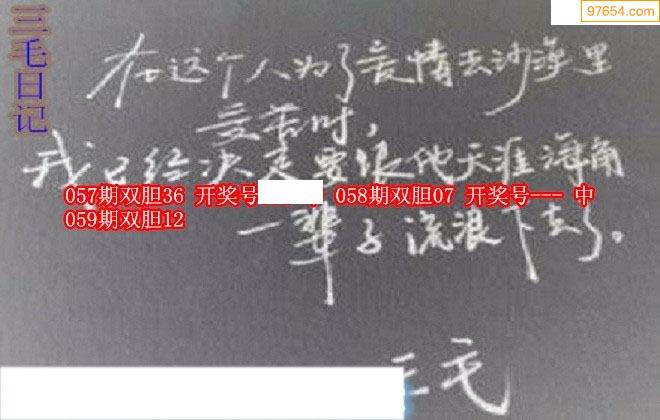 97654.com
三毛日记
在这个人为了爱情去沙漠里
受苦时，
我已经决定要跟他天涯海角
一辈子流浪下去了。
057期双胆36 开奖号 058期双胆07 开奖号--- 中
059期双胆12
三毛